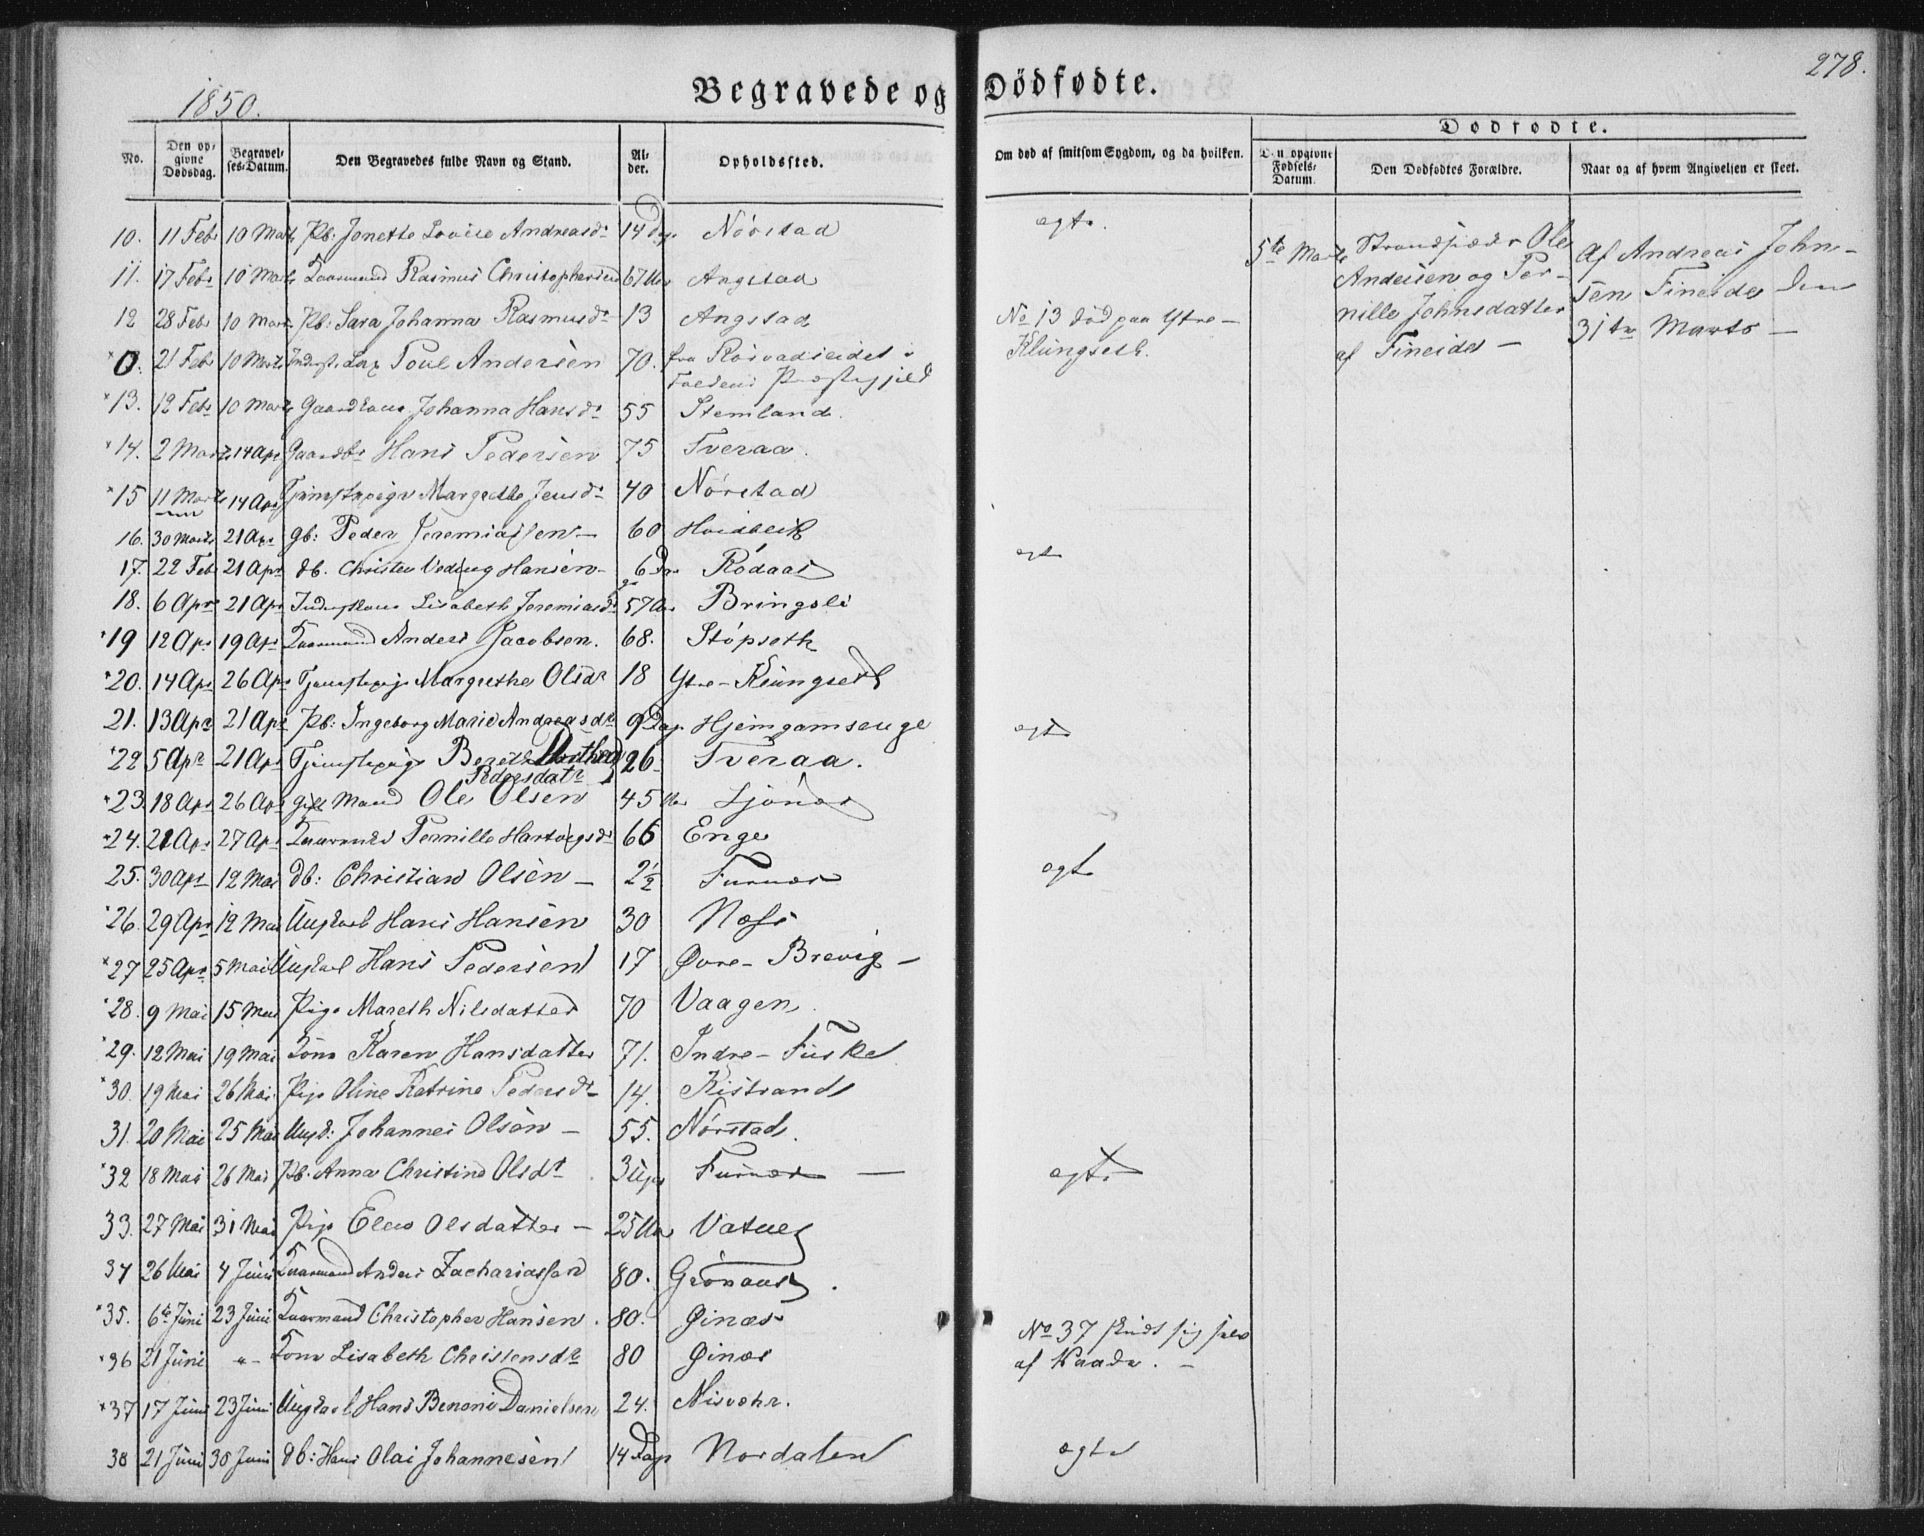 1850.
Begravede og Dödfødte.
278.
No.
Den opgivne Dødsdag.
Begravelses-Datum.
Den Begravedes fulde Navn og Stand.
Alder.
Opholdssted.
Om død af smitsom Sygdom, og da hvilken.
Dødfødte.
Den opgivne Fødsels-Datum.
Den Dødfødtes Forældre.
Naar og af hvem Angivelsen er skeet.
10. 11 Feb 10 Marts Pb: Jonette Lovise Andreasdr 14 Dage Nörstad egte
11. 17 Feb 10 Marts Kaarmand Rasmus Christophersen 67 Aar Angstad
12 28 Feb 10 Marts Pb: Sara Johanna Rasmusdr 13 Angstad
0. 21 Feb 10 Marts Poul Andersen 70. fra Røsvadeidet i Foldens Præstegjeld
13. 12 Feb 10 Marts Gaardkone Johanna Hansdr 55 Stemland.
14. 2 Marts 14 Apr Gaardbr Hans Pedersen 75 Tveraa.
15 11 Marts 14 Apr Tjenestepige Margrethe Jensdr 40 Nörstad
16. 30 Marts 21 Apr gb: Peder Jeremiassen - 60 Hvidbeck
17. 22 Feb 21 Apr db. Christen Hansen - 6 Dage Rödaas egte
18. 6 Apr 21 Apr Lisabeth Jeremiasdr 57 Aar Bringsli
19 12 Apr 19 Apr Kaarmand Anders Jacobsen. 68. Stöpseth
20. 14 Apr 26 Apr Tjenestepige Margrethe Olsdr 18 Ytre-Klungseth
21. 13 Apr 21 Apr Pb: Ingeborg Marie Andreasdr 9 Dage Hjemgamsenge egte
22 5 Apr 21 Apr Tjenestepige Bereth Dorthea Pedersdatr 26 Tveraa.
23. 18 Apr 26 Apr gift Mand Ole Olsen 45 Aar Ljönes
24. 21 Apr 27 Apr Pernille Hartvigsdr 66 Enge
25. 30 Apr 12 Mai db: Christian Olsen - 2½ Furnes egte
26. 29 Apr 12 Mai Ungkarl Hans Hansen 30 Næss
27 25 Apr 5 Mai Ungkarl Hans Pedersen 17 Øvre-Brevig -
28. 9 Mai 15 Mai Pige Mareth Nilsdatter 70 Vaagen.
29. 12 Mai 19 Mai Kone Karen Hansdatter 71. Indre-Fuske
30. 19 Mai 26 Mai Pige Oline Katrine Pedersdr 14. Kistrand
31. 20 Mai 25 Mai Johannes Olsen - 55. Nörstad.
32 18 Mai 26 Mai Pb: Anna Christine Olsdr 3 Uger Furnes - egte
33. 27 Mai 31 Mai Pige Elen Olsdatter - 25 Aar Vatne
34 26 Mai 4 Juni Kaarmand Anders Zachariassen 80. Grönaas.
35. 6te Juni 23 Juni Kaarmand Christopher Hansen. 80. Øines
36 21 Juni -"- Kone Lisabeth Christensdr 80 Øines
37 17 Juni 23 Juni Ungkarl Hans Benoni Danielsen 24. Misvær.
38 21 Juni 30 Juni gb: Hans Olai Johannesen 14 Dage Nordalen egte
No 13 död paa Ytre-
Klungseth.
No 37 skudt sig selv
af Vaade. -
5te Marts
Strandsidder Ole
Andersen og Per-
nille Johnsdatter
af Fineidet -
Af Andreas John-
sen Fineidet den
31te Marts -